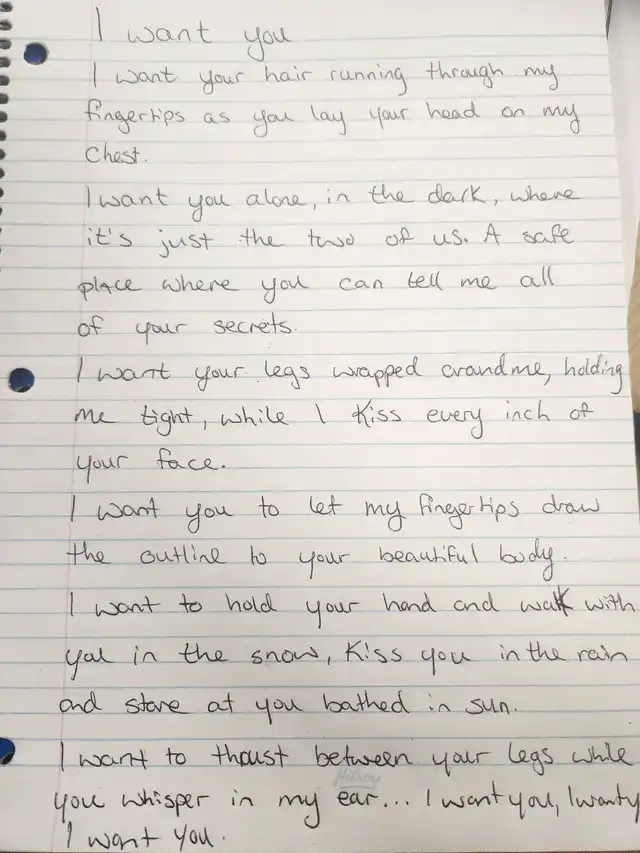 I want you
I want your hair running through my
fingertips as you lay your head on my
Chest.
I want you alone, in the dark, where
it's just the two of us. A safe
place where you can tell me all
of your secrets.
I want your legs wrapped around me, holding
me tight, while I kiss every inch of
your face.
I want you to let my fingertips draw
the outline to your beautiful body.
I want to hold your hand and walk with
you in the snow, kiss you in the rain
and stare at you bathed in sun.
I want to thrust between your legs while
Hilroy
you whisper in my ear... I want you, I want y
I want you.